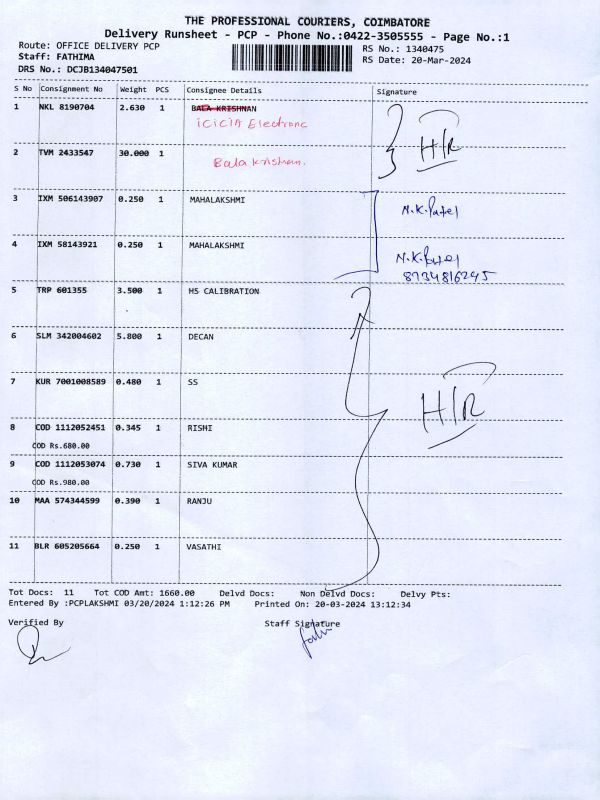 THE PROFESSIONAL COURIERS, COIMBATORE
Delivery Runsheet - PCP - Phone No.:0422-3505555 - Page No.:1
Route: OFFICE DELIVERY PCP
Staff: FATHIMA
DRS No.: DCJB134047501
RS No.: 1340475
RS Date: 20-Mar-2024
S No Consignment No Weight PCS Consignee Details Signature
1 NKL 8190704 2.630 1 BALA KRISHNAN
Electronc
2 TVM 2433547 30.000 1
Bala krishnan.
H/R
3 IXM 506143907 0.250 1 MAHALAKSHMI N.K.Patel
4 IXM 58143921 0.250 1 MAHALAKSHMI
N.K.Patel
8734816245
5 TRP 601355 3.500 1 HS CALIBRATION
6 SLM 342004602 5.800 1 DECAN
7 KUR 7001008589 0.480 1 SS
H/R
8 COD 1112052451 0.345 1 RISHI
COD Rs.680.00
9 COD 1112053074 0.730 1 SIVA KUMAR
COD Rs.980.00
10 MAA 574344599 0.390 1 RANJU
11 BLR 605205664 0.250 1 VASATHI
Tot Docs: 11 Tot COD Amt: 1660.00 Delvd Docs: Non Delvd Docs: Delvy Pts:
Entered By :PCPLAKSHMI 03/20/2024 1:12:26 PM Printed On: 20-03-2024 13:12:34
Verified By Staff Signature